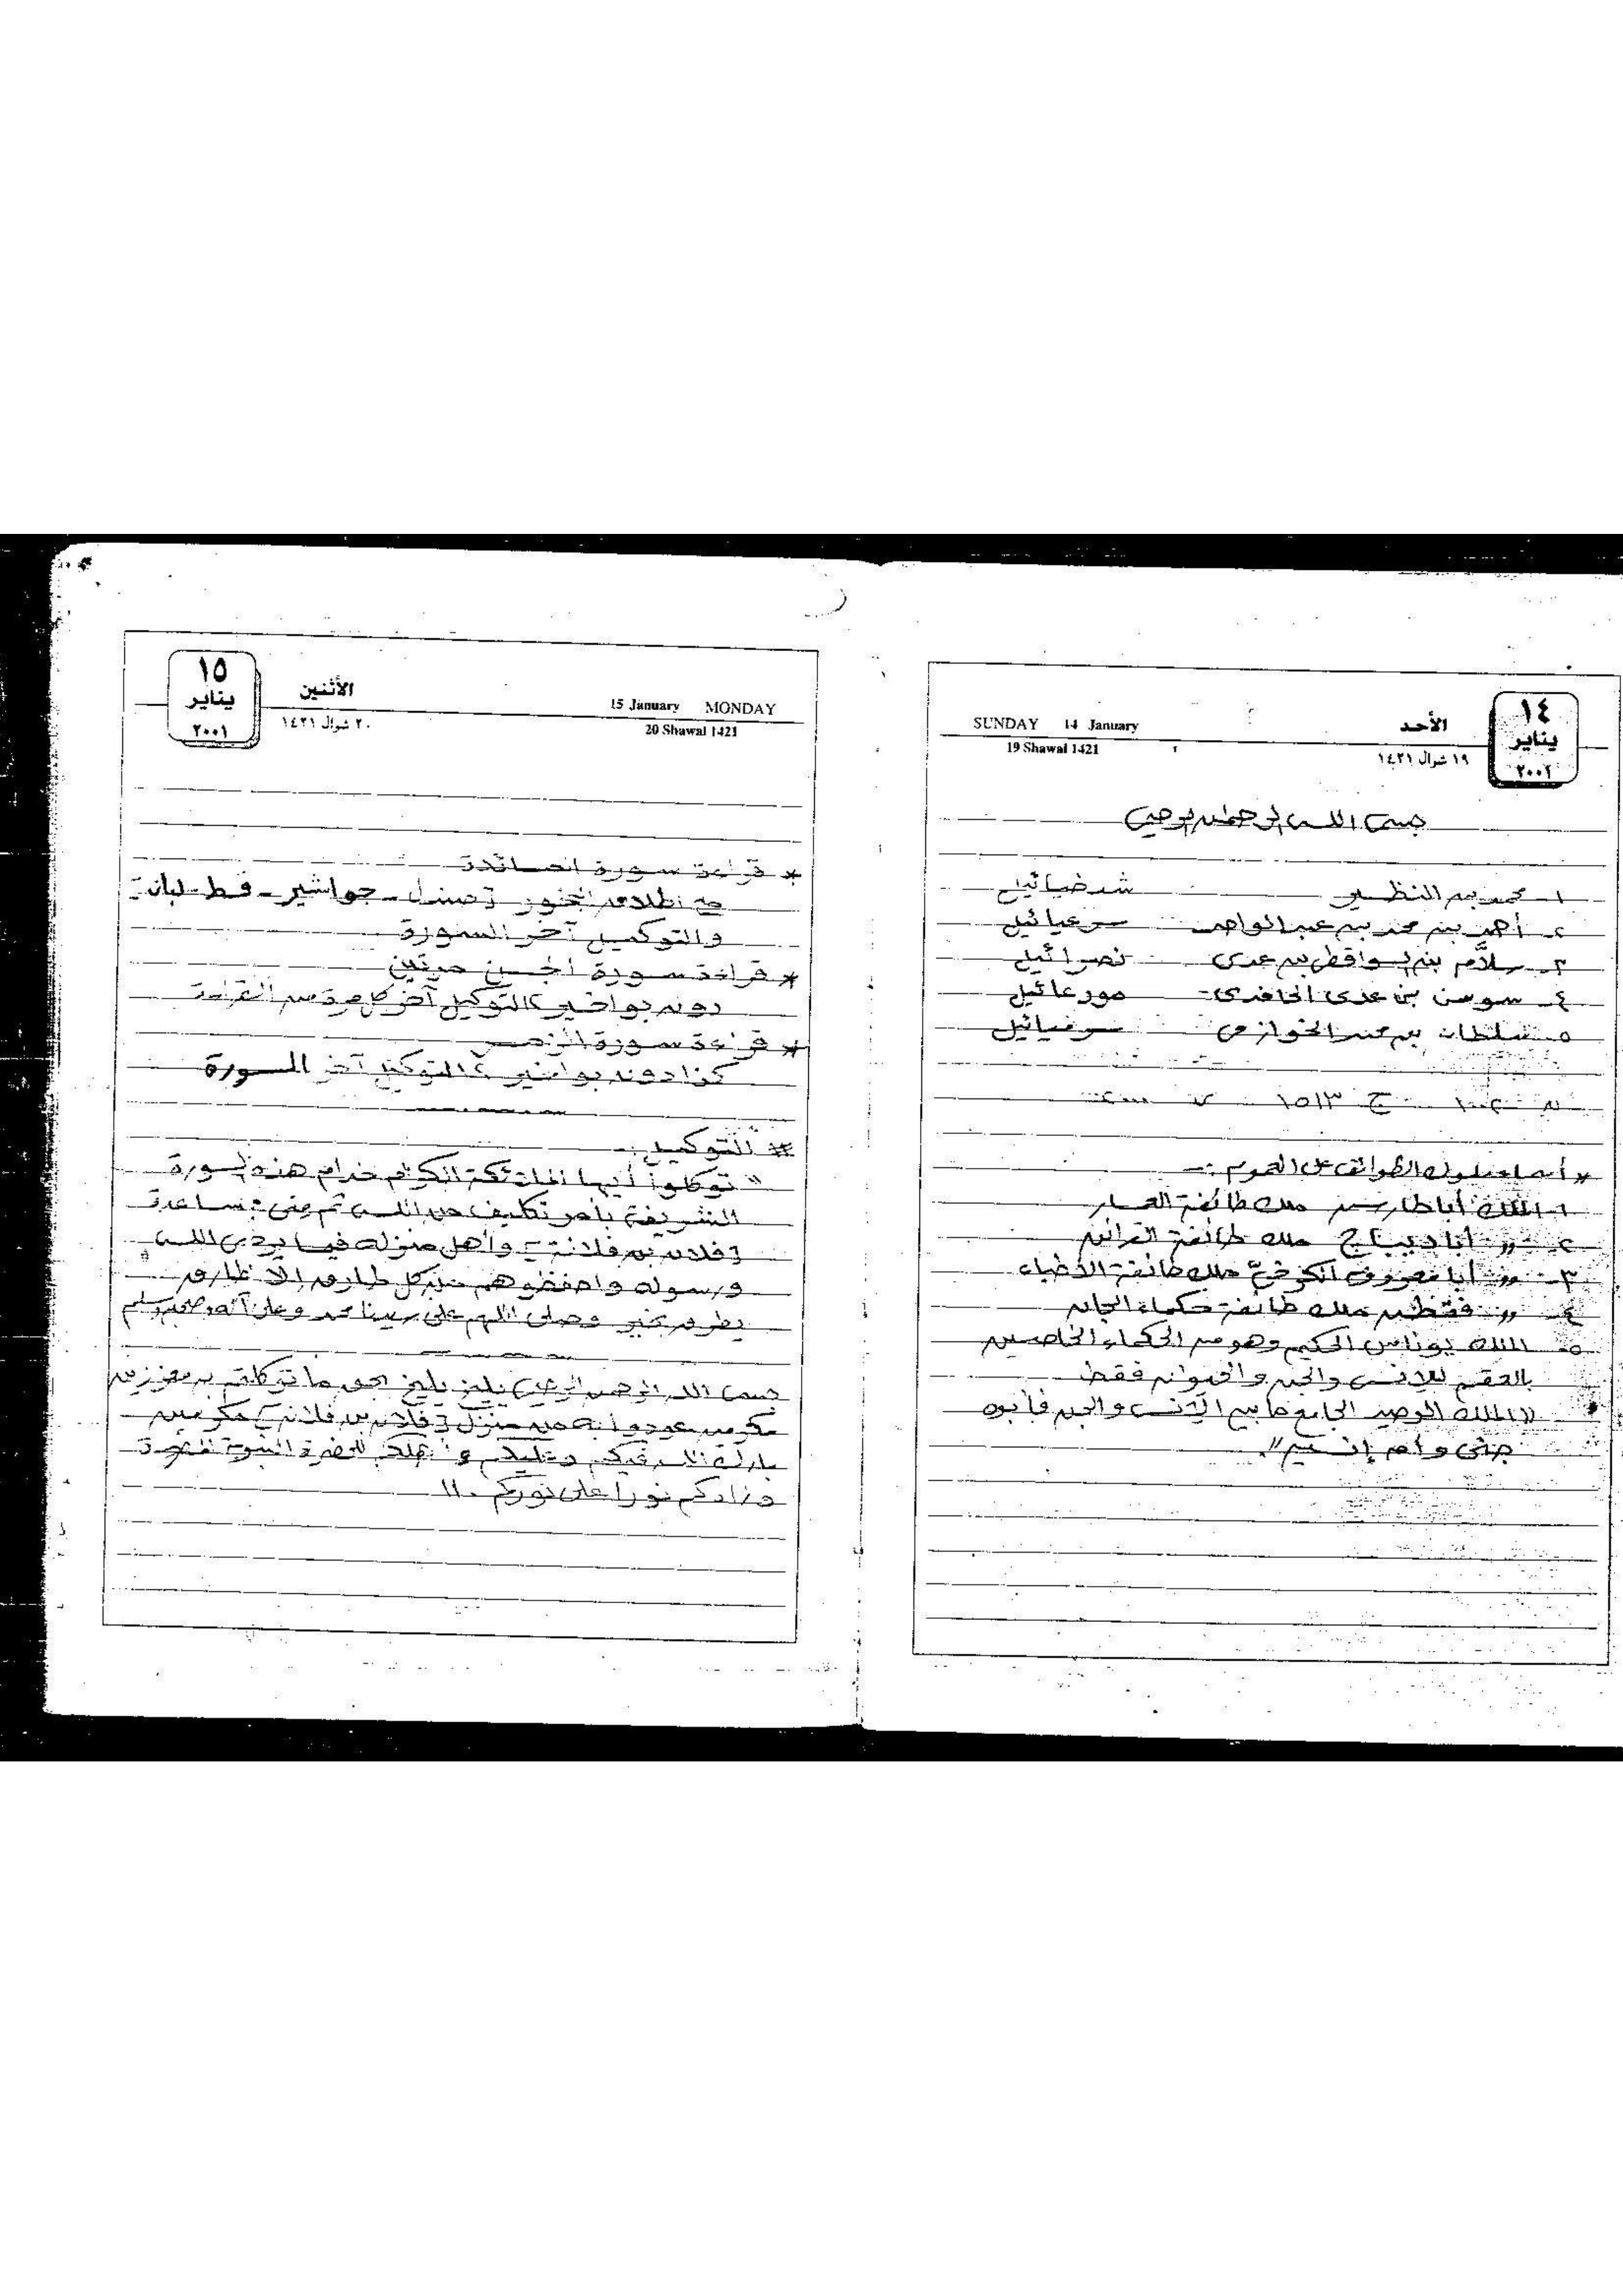 ١٤
يناير
٢٠٠١
الأحد
١٩ شوال ١٤٢١
SUNDAY 14 January
19 Shawal 1421
بسم الله الرحمن الرحيم
١- محمد بن النظير شدخيائيل
٢- أحمد بن محمد بن عبد الواحد سرعيائيل
٣- سلّام بن عدى نصرائيل
٤- سوسن بن عدى مورعائيل
٥- سلطان بن محمد الخوارزمى سرفيائيل
١٥١٣
* أسماء ملوك الطوائف على العموم :-
١- الملك أبا طارس ملك طائفة العمار
٢- " أبا ديباج ملك طائفة القرائن
٣- " أبا معروف الكرخىّ ملك طائفة الأطباء
٤- " فقطش ملك طائفة حكماء الجان
٥- الملك يوناس الحكيم وهو من الحكماء الخاصين
بالعقم للإنس والجن والحيوان فقط
" الملك الوحيد الجامع ما بين الإنس والجن فأبوه
جنى وأم إنسية "
١٥
يناير
٢٠٠١
الأثنين
٢٠ شوال ١٤٢١
15 January MONDAY
20 Shawal 1421
* قراءة سورة المائدة
مع اطلاق البخور [ صندل - جواشير - قسط - لبان ]
والتوكيل آخر السورة
* قراءة سورة الجن مرتين
دون بواخير والتوكيل آخر كل مرة من القراءة
* قراءة سورة الزمر
كذا دون بواخير والتوكيل آخر السورة
* التوكيل :-
" توكلوا أيها الملائكة الكرام خدام هذه السورة
الشريفة بأمر تكليف من الله ثم منى بمساعدة
[ فلان بن فلانة ] وأهل منزله فيما يرضى الله
ورسوله واحفظوهم من كل طارق إلا طارق
يطرق بخير وصلى اللهم على سيدنا محمد وعلى آله وصحبه وسلم
بسم الله الرحمن الرحيم بليخ بليخ بحق ما توكلتم به معززين
مكرمين عودوا به من منزل [ فلان بن فلانة ] مكرمين
بارك الله فيكم وعليكم للحضرة النبوية
وزادكم نورا على نوركم . "